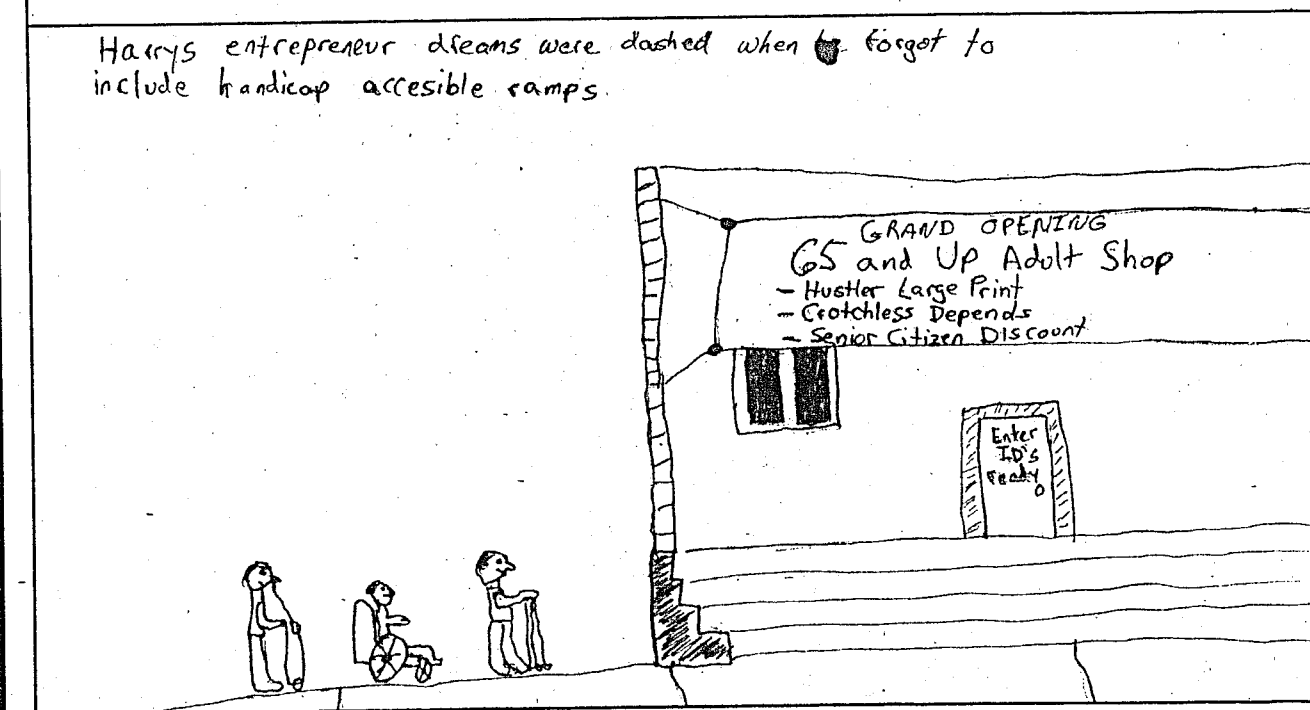 Harrys entrepreneur dreams were dashed when forgot to
include handicap accesible ramps.
GRAND OPENING
65 and Up Adult Shop
- Hustler Large Print
- Crotchless Depends
- Senior Citizen Discount
Enter
I.D's
ready